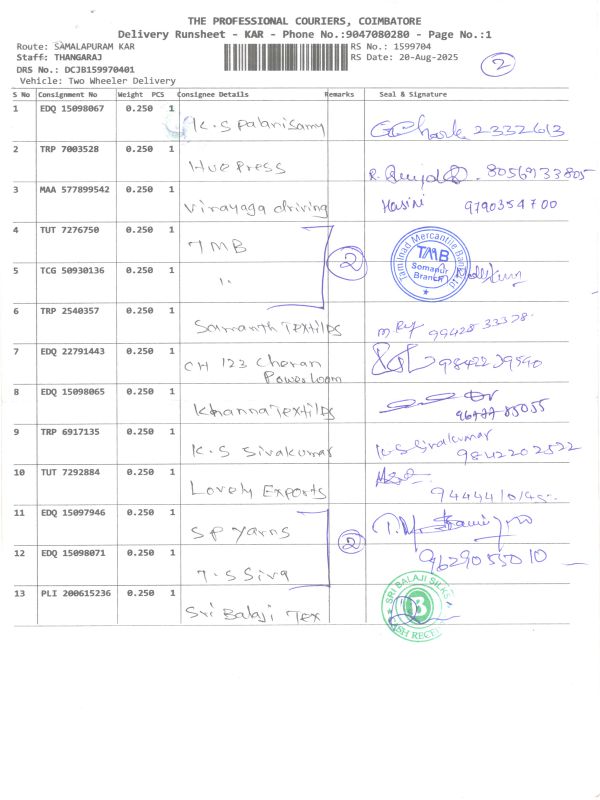 THE PROFESSIONAL COURIERS, COIMBATORE
Delivery Runsheet - KAR - Phone No.:9047080280 - Page No.:1
Route: SAMALAPURAM KAR RS No.: 1599704
Staff: THANGARAJ RS Date: 20-Aug-2025
DRS No.: DCJB159970401 2
Vehicle: Two Wheeler Delivery
S No Consignment No Weight PCS Consignee Details Remarks Seal & Signature
1 EDQ 15098067 0.250 1
K.S Palanisamy 2332613
2 TRP 7003528 0.250 1
Huo Press 8056933805
3 MAA 577899542 0.250 1
Virayaga driving Hasini 9790354700
4 TUT 7276750 0.250 1
TMB 2 Tamilnad Mercantile Bank Ltd TMB Somanur Branch
5 TCG 50930136 0.250 1
"
6 TRP 2540357 0.250 1
Samanth Textiles 99428 33378
7 EDQ 22791443 0.250 1
CH 123 Cheran
Powerloom
8 EDQ 15098065 0.250 1
Khanna Textiles
9 TRP 6917135 0.250 1
K.S Sivakumar K.S Sivakumar
9842202522
10 TUT 7292884 0.250 1
Lovely Exports
11 EDQ 15097946 0.250 1
SP Yarns 2
12 EDQ 15098071 0.250 1
T.S Siva 9629055010
13 PLI 200615236 0.250 1
Sri Balaji Tex SRI BALAJI SILKS B